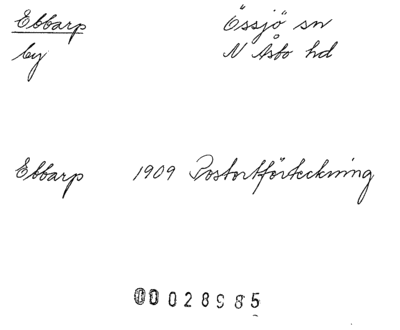 Ebbarp Össjö sn
by N Åsbo hd
Ebbarp 1909 Postortförteckning
00028985